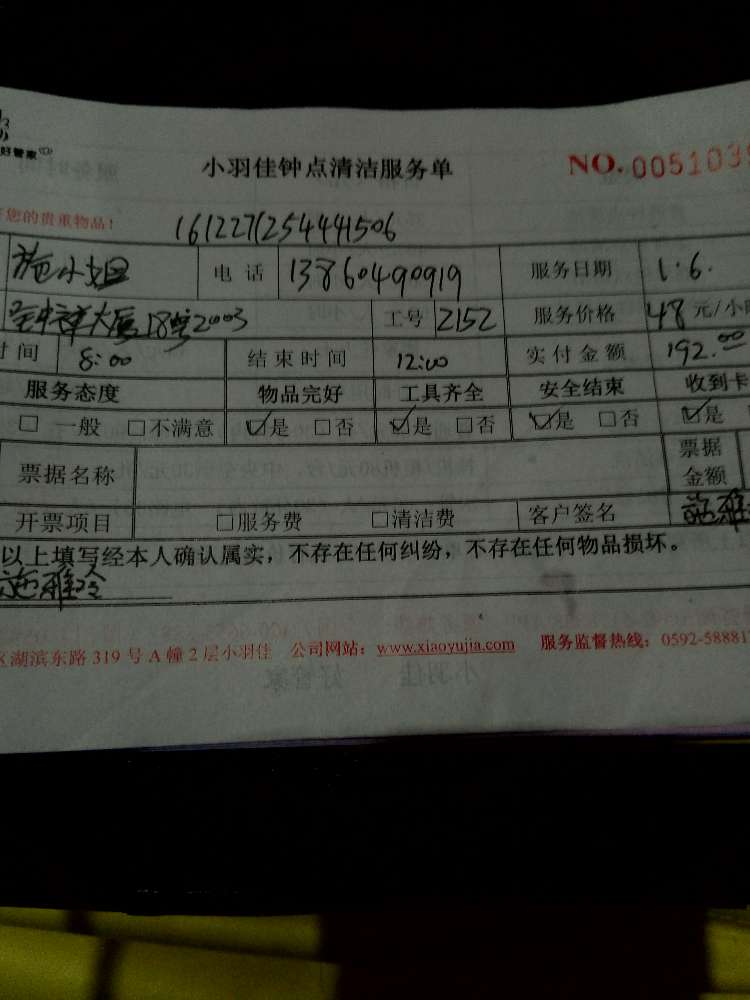 好管家
小羽佳钟点清洁服务单 NO. 005103
您的贵重物品!
1612271254441506
施小姐 电话 13860490919 服务日期 1.6.
大厦18号2003 工号 2152 服务价格 48 元/小
时间 8:00 结束时间 12:00 实付金额 192.00
服务态度 物品完好 工具齐全 安全结束 收到卡
□ 一般 □不满意 ☑是 □否 ☑是 □否 ☑是 □否 ☑是
票据名称 票据金额
开票项目 □服务费 □清洁费 客户签名 施雅
以上填写经本人确认属实，不存在任何纠纷，不存在任何物品损坏。
施雅
区湖滨东路 319 号 A 幢 2 层小羽佳 公司网站：www.xiaoyujia.com 服务监督热线：0592-58881